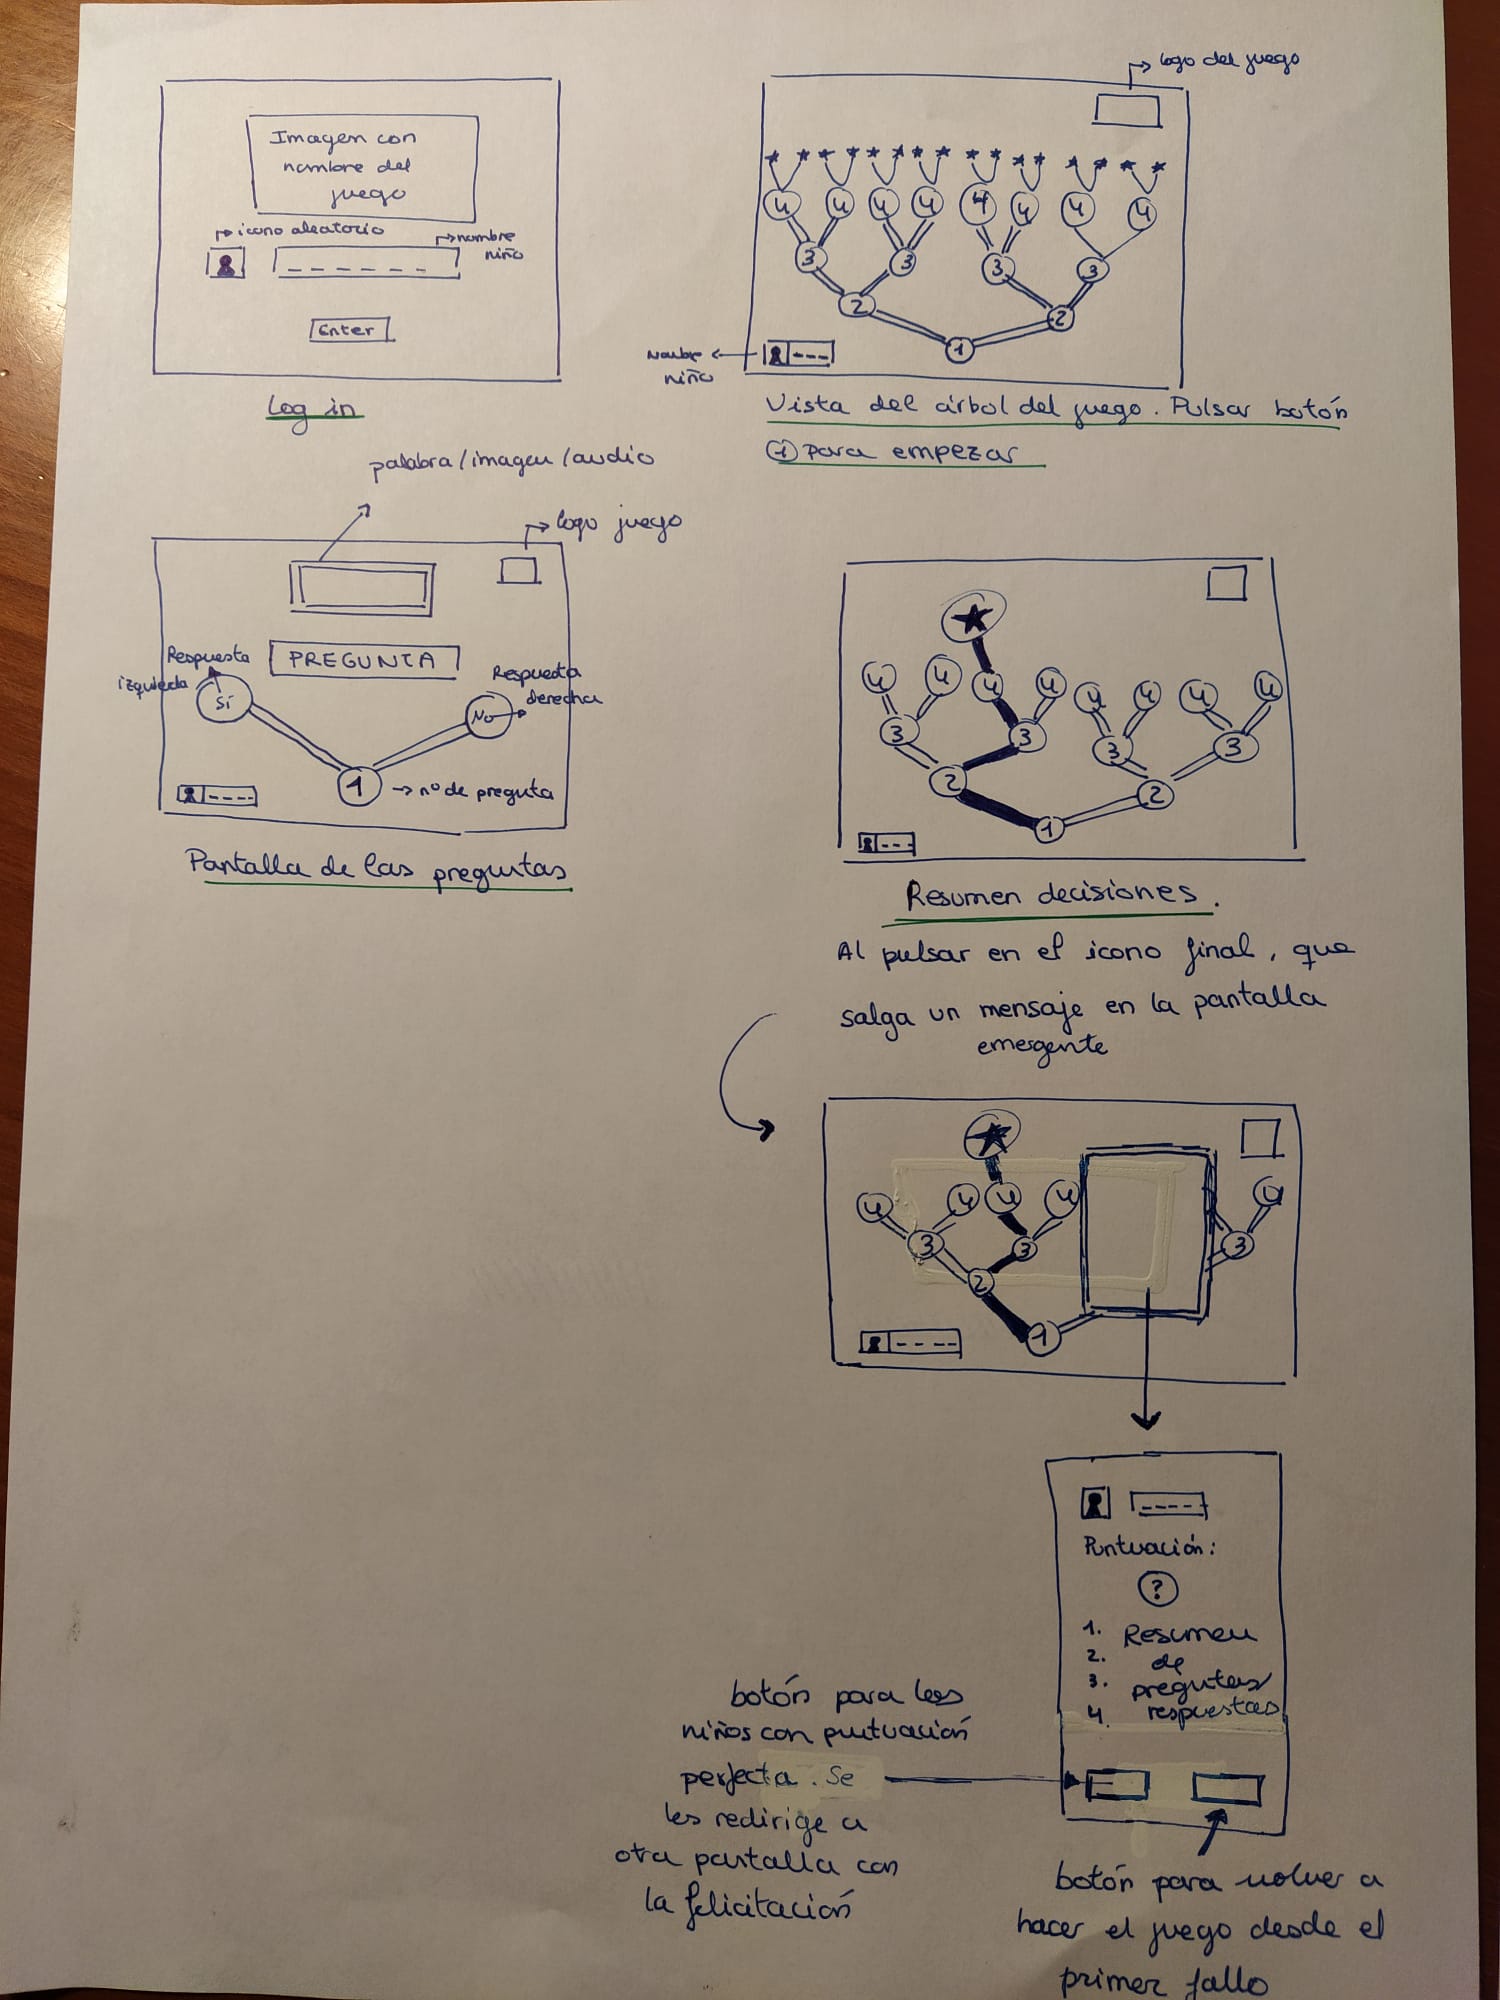 Imagen con
nombre del
juego
icono aleatorio
nombre
niño
Enter
Log in
logo del juego
* * * * * * * * * * * * * * * *
4 4 4 4 4 4 4 4
3 3 3 3
2 2
1
Nombre
niño
---
Vista del árbol del juego. Pulsar botón
① para empezar
palabra/imagen/audio
logo juego
PREGUNTA
Respuesta
izquierda
Sí
Respuesta
derecha
No
1
nº de pregunta
Pantalla de las preguntas
4 4 4 4 4 4 4 4
3 3 3 3
2 2
1
Resumen decisiones.
Al pulsar en el icono final, que
salga un mensaje en la pantalla
emergente
4 4 4 4 4
3 3 3
2
1
Puntuación:
?
1. Resumen
2. de
3. preguntas
4. respuestas
botón para los
niños con puntuación
perfecta. Se
les redirige a
otra pantalla con
la felicitación
botón para volver a
hacer el juego desde el
primer fallo